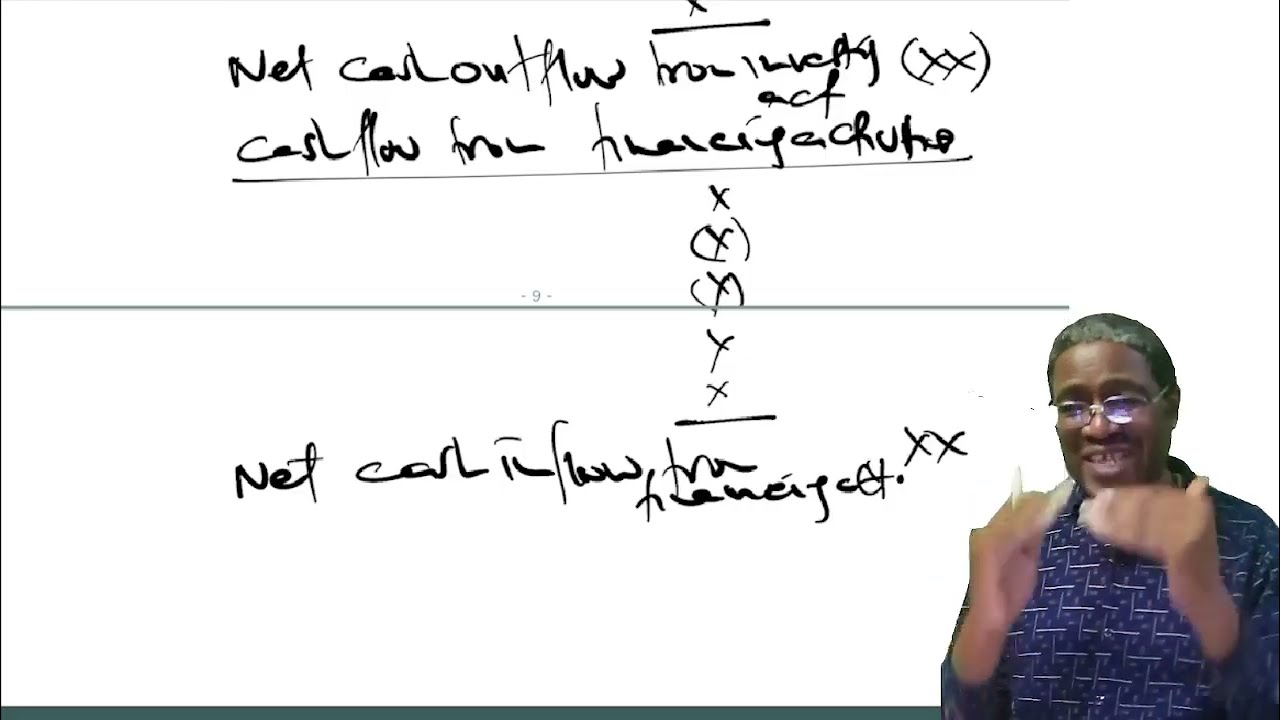 x
Net cash outflow from investing (xx)
act
cash flow from financing activities
x
(x)
(x)
- 9 -
x
x
Net cash inflow from
financing act. xx